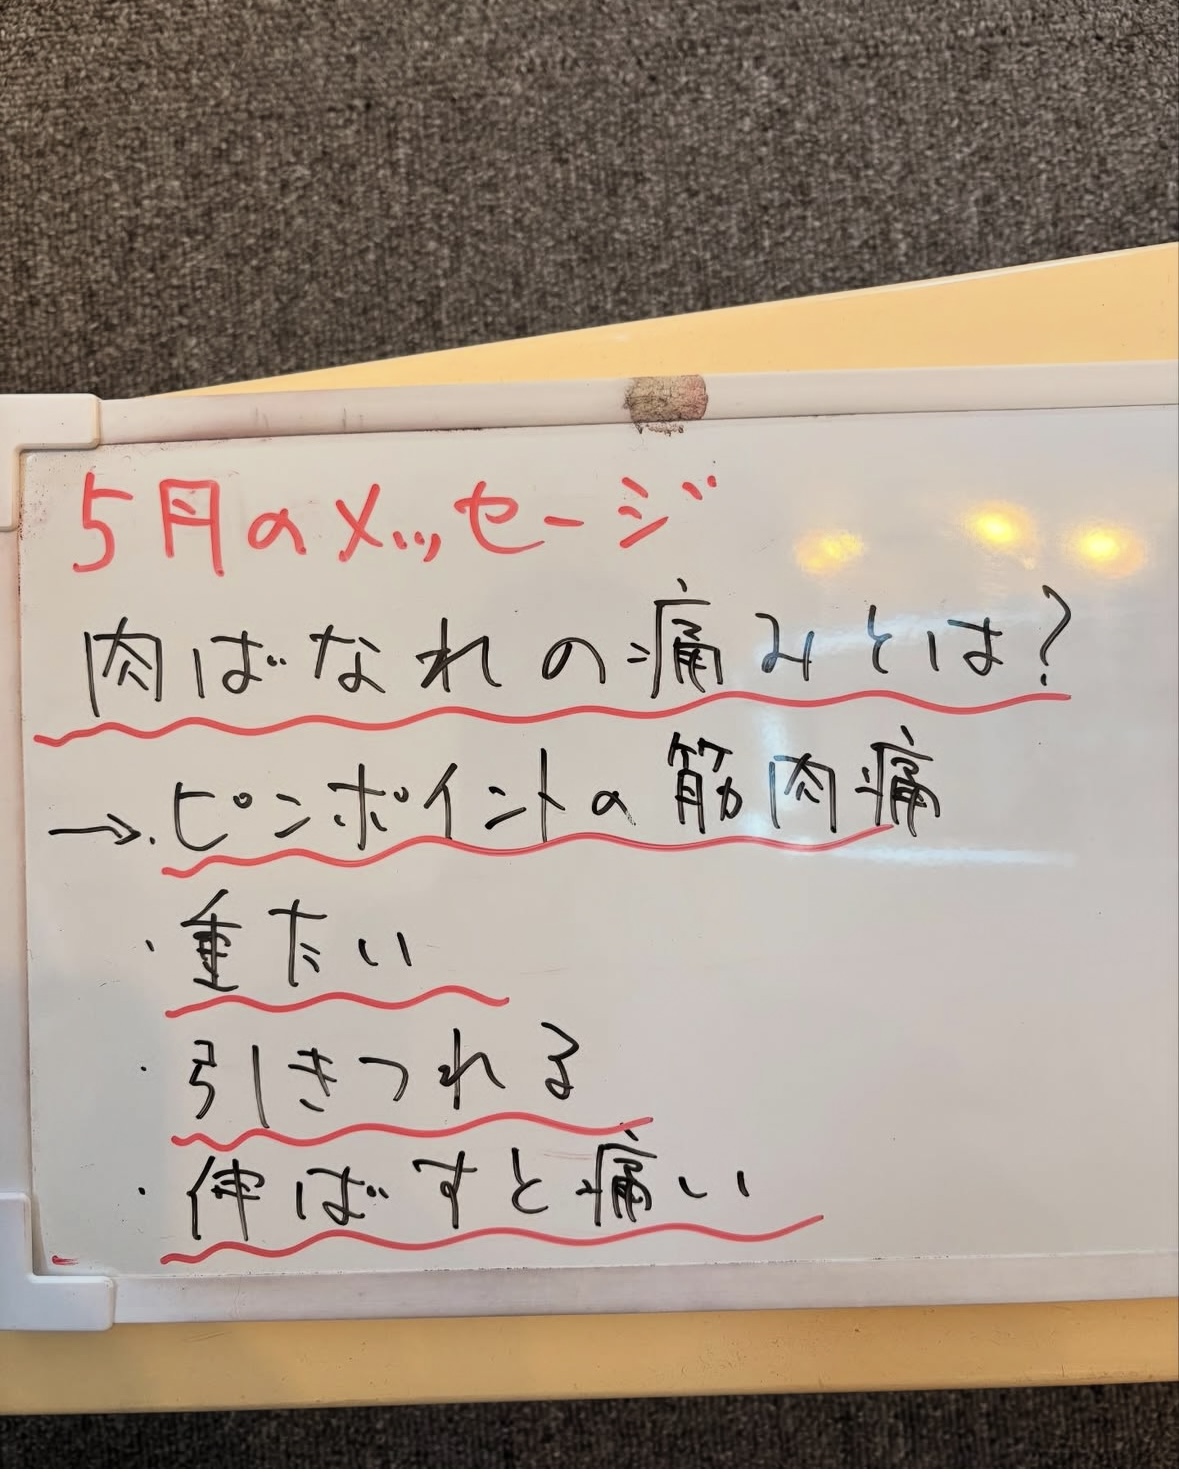 5月のメッセージ
肉ばなれの痛みとは?
→・ピンポイントの筋肉痛
・重たい
・引きつれる
・伸ばすと痛い